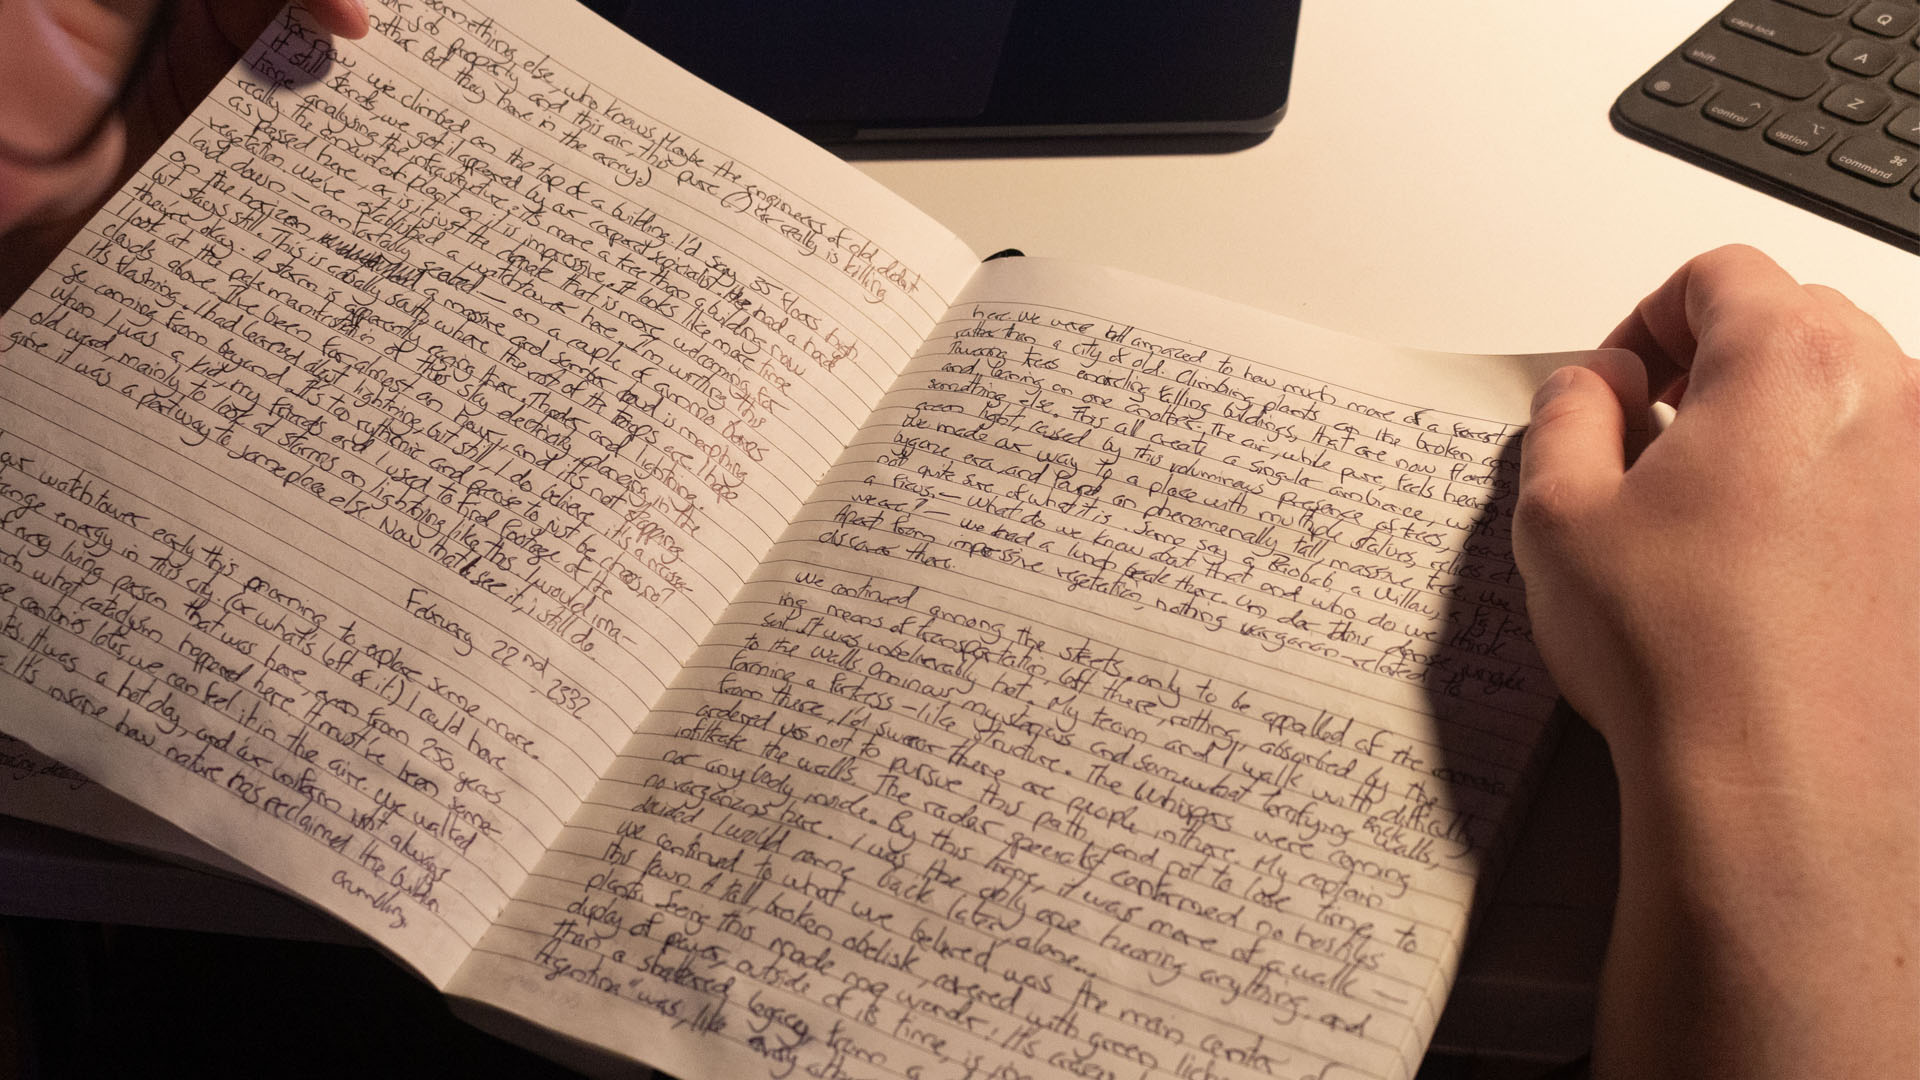 something else, who knows. Maybe the engineers of old didn't
job properly and this air, this pure (!) air really is killing
another bit they have in the army:)
For now we climbed on the top of a building. I'd say 35 floors high
it still stands, we got it appeased by our corporal specialist. He had a hard
time analysing the infrastructure: it's more a tree than a building now
really, the amount of plant on it is impressive. It looks like more time
as passed here, or is it just the climate that is more welcoming for
vegetation. We've established a watchtower here. I'm writing this
laid down - comfortably seated - on a couple of ammo boxes
on the horizon a massive and somber cloud is morphing
but stays still. This is actually south where the rest of the troops are. I hope
they're okay. A storm is apparently raging there. Thunder and lightning.
I look at the pale manifestation of this sky electricity, plunging in the
clouds above. I've been for almost an hour, and it's not stopping
its flashing. I had learned about lightning, but still, I do believe it's a noise
coming from beyond. It's too rythmic and precise to just be chaos, no?
When I was a kid, my friends and I used to find footage of the
old world, mainly to look at storms or lighting like this. I would ima-
gine it was a portway to someplace else. Now that I see it, i still do.
February 22nd, 2332
our watchtower early this morning to explore some more.
energy in this city. (or what's left of it) I could have
every living person that was here, even from 250 years
what cataclysm happened here. It must've been some-
centuries later, we can feel it in the aire. We walked
It was a hot day, and our uniform isn't always
It's insane how nature has reclaimed the buildin
crumbling,
here. We were all amazed to how much more of a forest
rather than a city of old. Climbing plants on the broken
Towering trees encircling falling buildings, that are now floating
and leaning on one another. The air, while pure, feels heavy
something else. This all create a singular ambiance, with
green light, caused by this voluminous presence of trees,
We made our way to a place with multiple statues, relics of
bygone era, and found an phenomenally tall, massive tree. We
not quite sure of what it is. Some say a Baobab, a Willow, a
a Ficus. - What do we know about that and who do we think
we are? - We had a lunch break there, under this dense jungle
Apart from impressive vegetation, nothing varganan-related to
discover there.
We continued among the streets, only to be appalled at the
ing means of transportation left there, rotting, absorbed by the
soil. It was unbelievably hot. My team and I walk with difficulty
to the walls. Ominous, mysterious and somewhat terrifying walls,
forming a fortress-like structure. The Whispers were coming
from there, I'd swear there are people in there. My captain
ordered us not to pursue this path, and not to lose time to
infiltrate the walls. The radar specialist confirmed no hostiles
nor anybody inside. By this time, it was more of a walk -
no varganans here. I was the only one hearing anything. and
decided I would come back later, alone...
We continued to what we believed was the main center of
this town A tall, broken obelisk, covered with green
plants. Seeing this made me wonder: It's
display of power, outside of its time, is
than a shattered legacy from a
"Argentina" was, like every